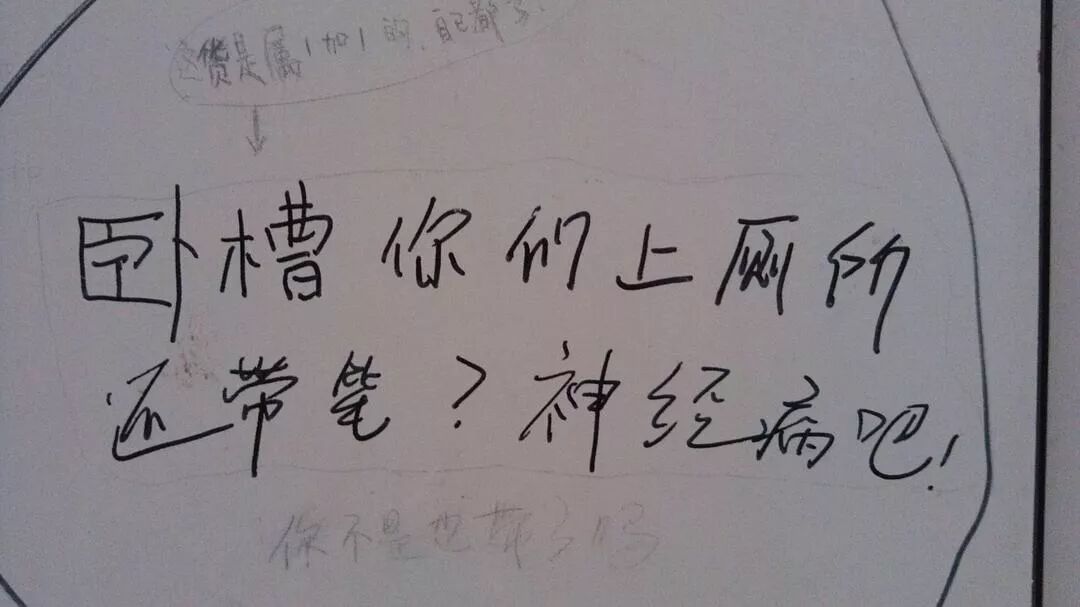 这货是属1加1的，自己都
卧槽你们上厕所
还带笔？神经病吧！
你不是也带了吗